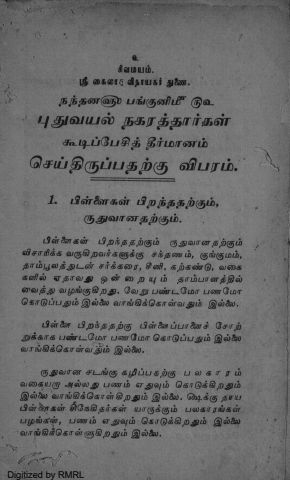 உ
சிவமயம்.
ஸ்ரீ கைலாச விநாயகர் துணை.
நந்தனஹு பங்குனிமீ
புதுவயல் நகரத்தார்கள்
கூடிப்பேசித் தீர்மானம்
செய்திருப்பதற்கு விபரம்.
1. பிள்ளைகள் பிறந்ததற்கும்,
ருதுவானதற்கும்.
பிள்ளைகள் பிறந்ததற்கும் ருதுவானதற்கும்
விசாரிக்க வருகிறவர்களுக்கு சந்தணம், குங்குமம்,
தாம்பூலத்துடன் சர்க்கரை, சீனி, கற்கண்டு, வகை
களில் ஏதாவது ஒன்றையும் தாம்பாளத்தில்
வைத்து வழங்குகிறது. வேறு பண்டமோ பணமோ
கொடுப்பதும் இல்லை வாங்கிக்கொள்வதும் இல்லை.
பிள்ளை பிறந்ததற்கு பிள்ளைப்பானைச் சோற்
றுக்காக பண்டமோ பணமோ கொடுப்பதும் இல்லை
வாங்கிக்கொள்வதும் இல்லை.
ருதுவான சடங்கு கழிப்பதற்கு பலகாரம்
வகையறா அல்லது பணம் எதுவும் கொடுக்கிறதும்
இல்லை வாங்கிக்கொள்கிறதும் இல்லை.
பிள்ளைகள் யாருக்கும் பலகாரங்கள்
பழங்கள், பணம் எதுவும் கொடுக்கிறதும் இல்லை
வாங்கிக்கொள்ளுகிறதும் இல்லை.
Digitized by RMRL